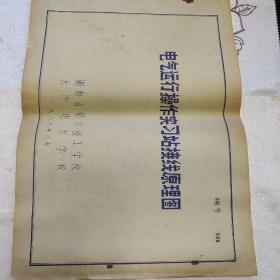 电气运行操作实习站接线原理图
湖南省电力技工学校
长沙电力学校
一九八九年二月
编号：